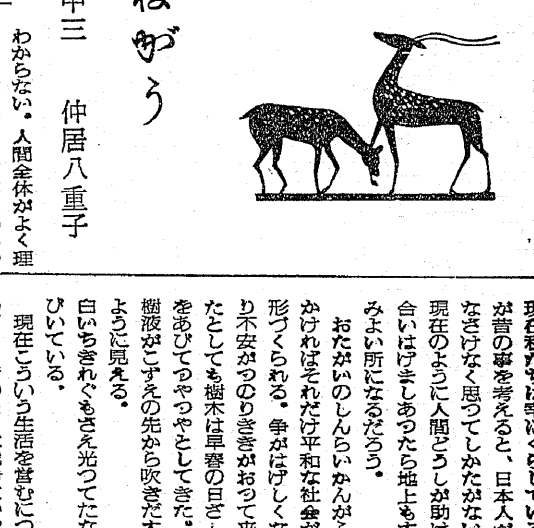 ねがう
中三　仲居八重子
わからない。人間全体がよく理
現在私たちは幸にくらしてい
が昔の事を考えると、日本人が
なさけなく思つてしかたがない
現在のように人間どうしが助け
合いはげましあつたら地上も
みよい所になるだろう。
おたがいのしんらいかんが
かければそれだけ平和な社会が
形づくられる。争がはげしくな
り不安がつのりききがおつて来
たとしても樹木は早春の日ざし
をあびてつやつやとしてきた。
樹液がこずえの先から吹きだ
ように見える。
白いちぎれぐもさえ光つてたな
びいている。
現在こういう生活を営むにつ